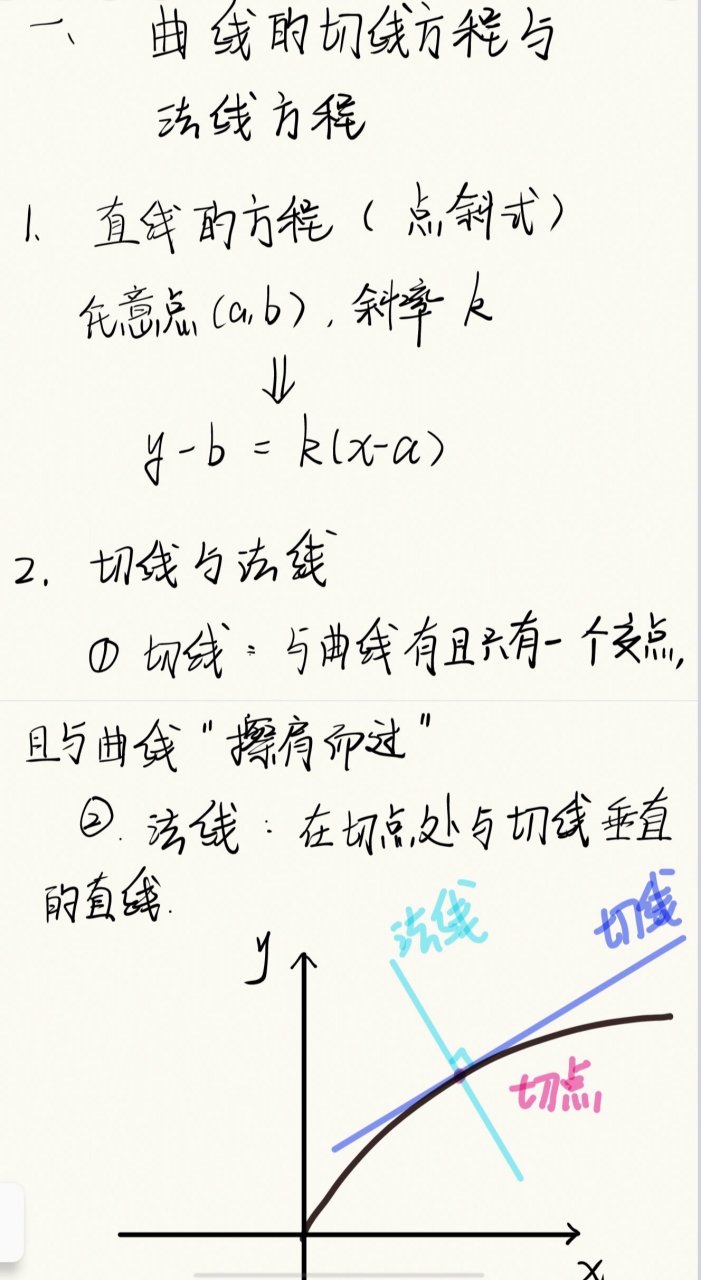 一、 曲线的切线方程与
法线方程
1. 直线的方程（点斜式）
任意点(a,b)，斜率 k
⇓
y-b = k(x-a)
2. 切线与法线
① 切线：与曲线有且只有一个交点,
且与曲线"擦肩而过"
②. 法线：在切点处与切线垂直
的直线.
法线
切线
y
切点
x